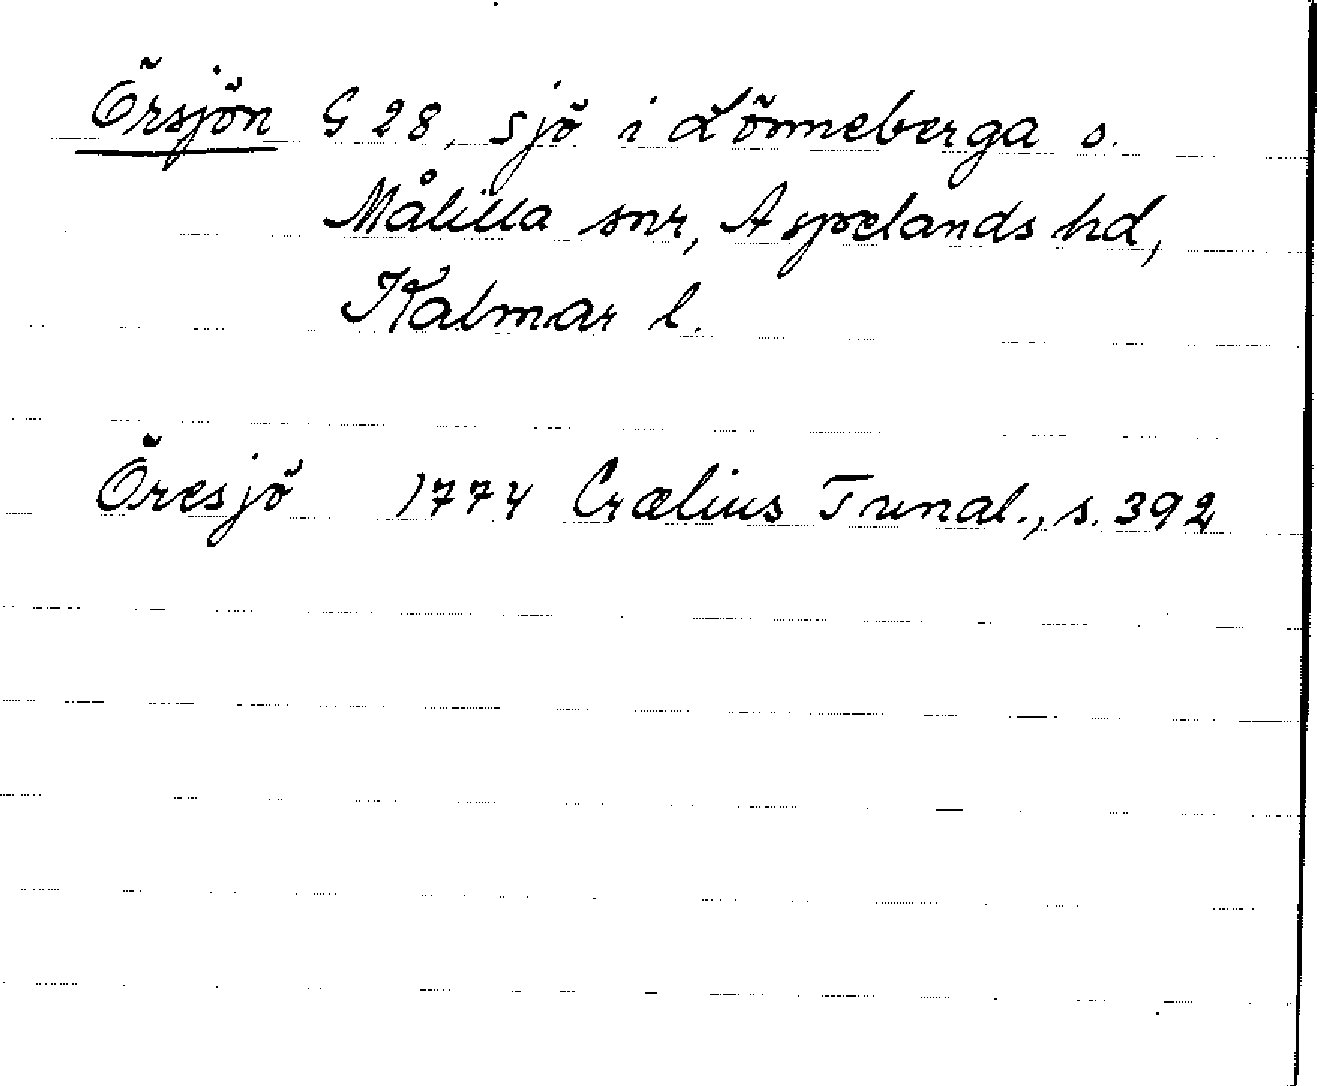 Örsjön G 28, sjö i Lönneberga o.
Målilla snr, Aspelands hd,
Kalmar l.
Öresjö 1774 Crælius Tunal., s. 392